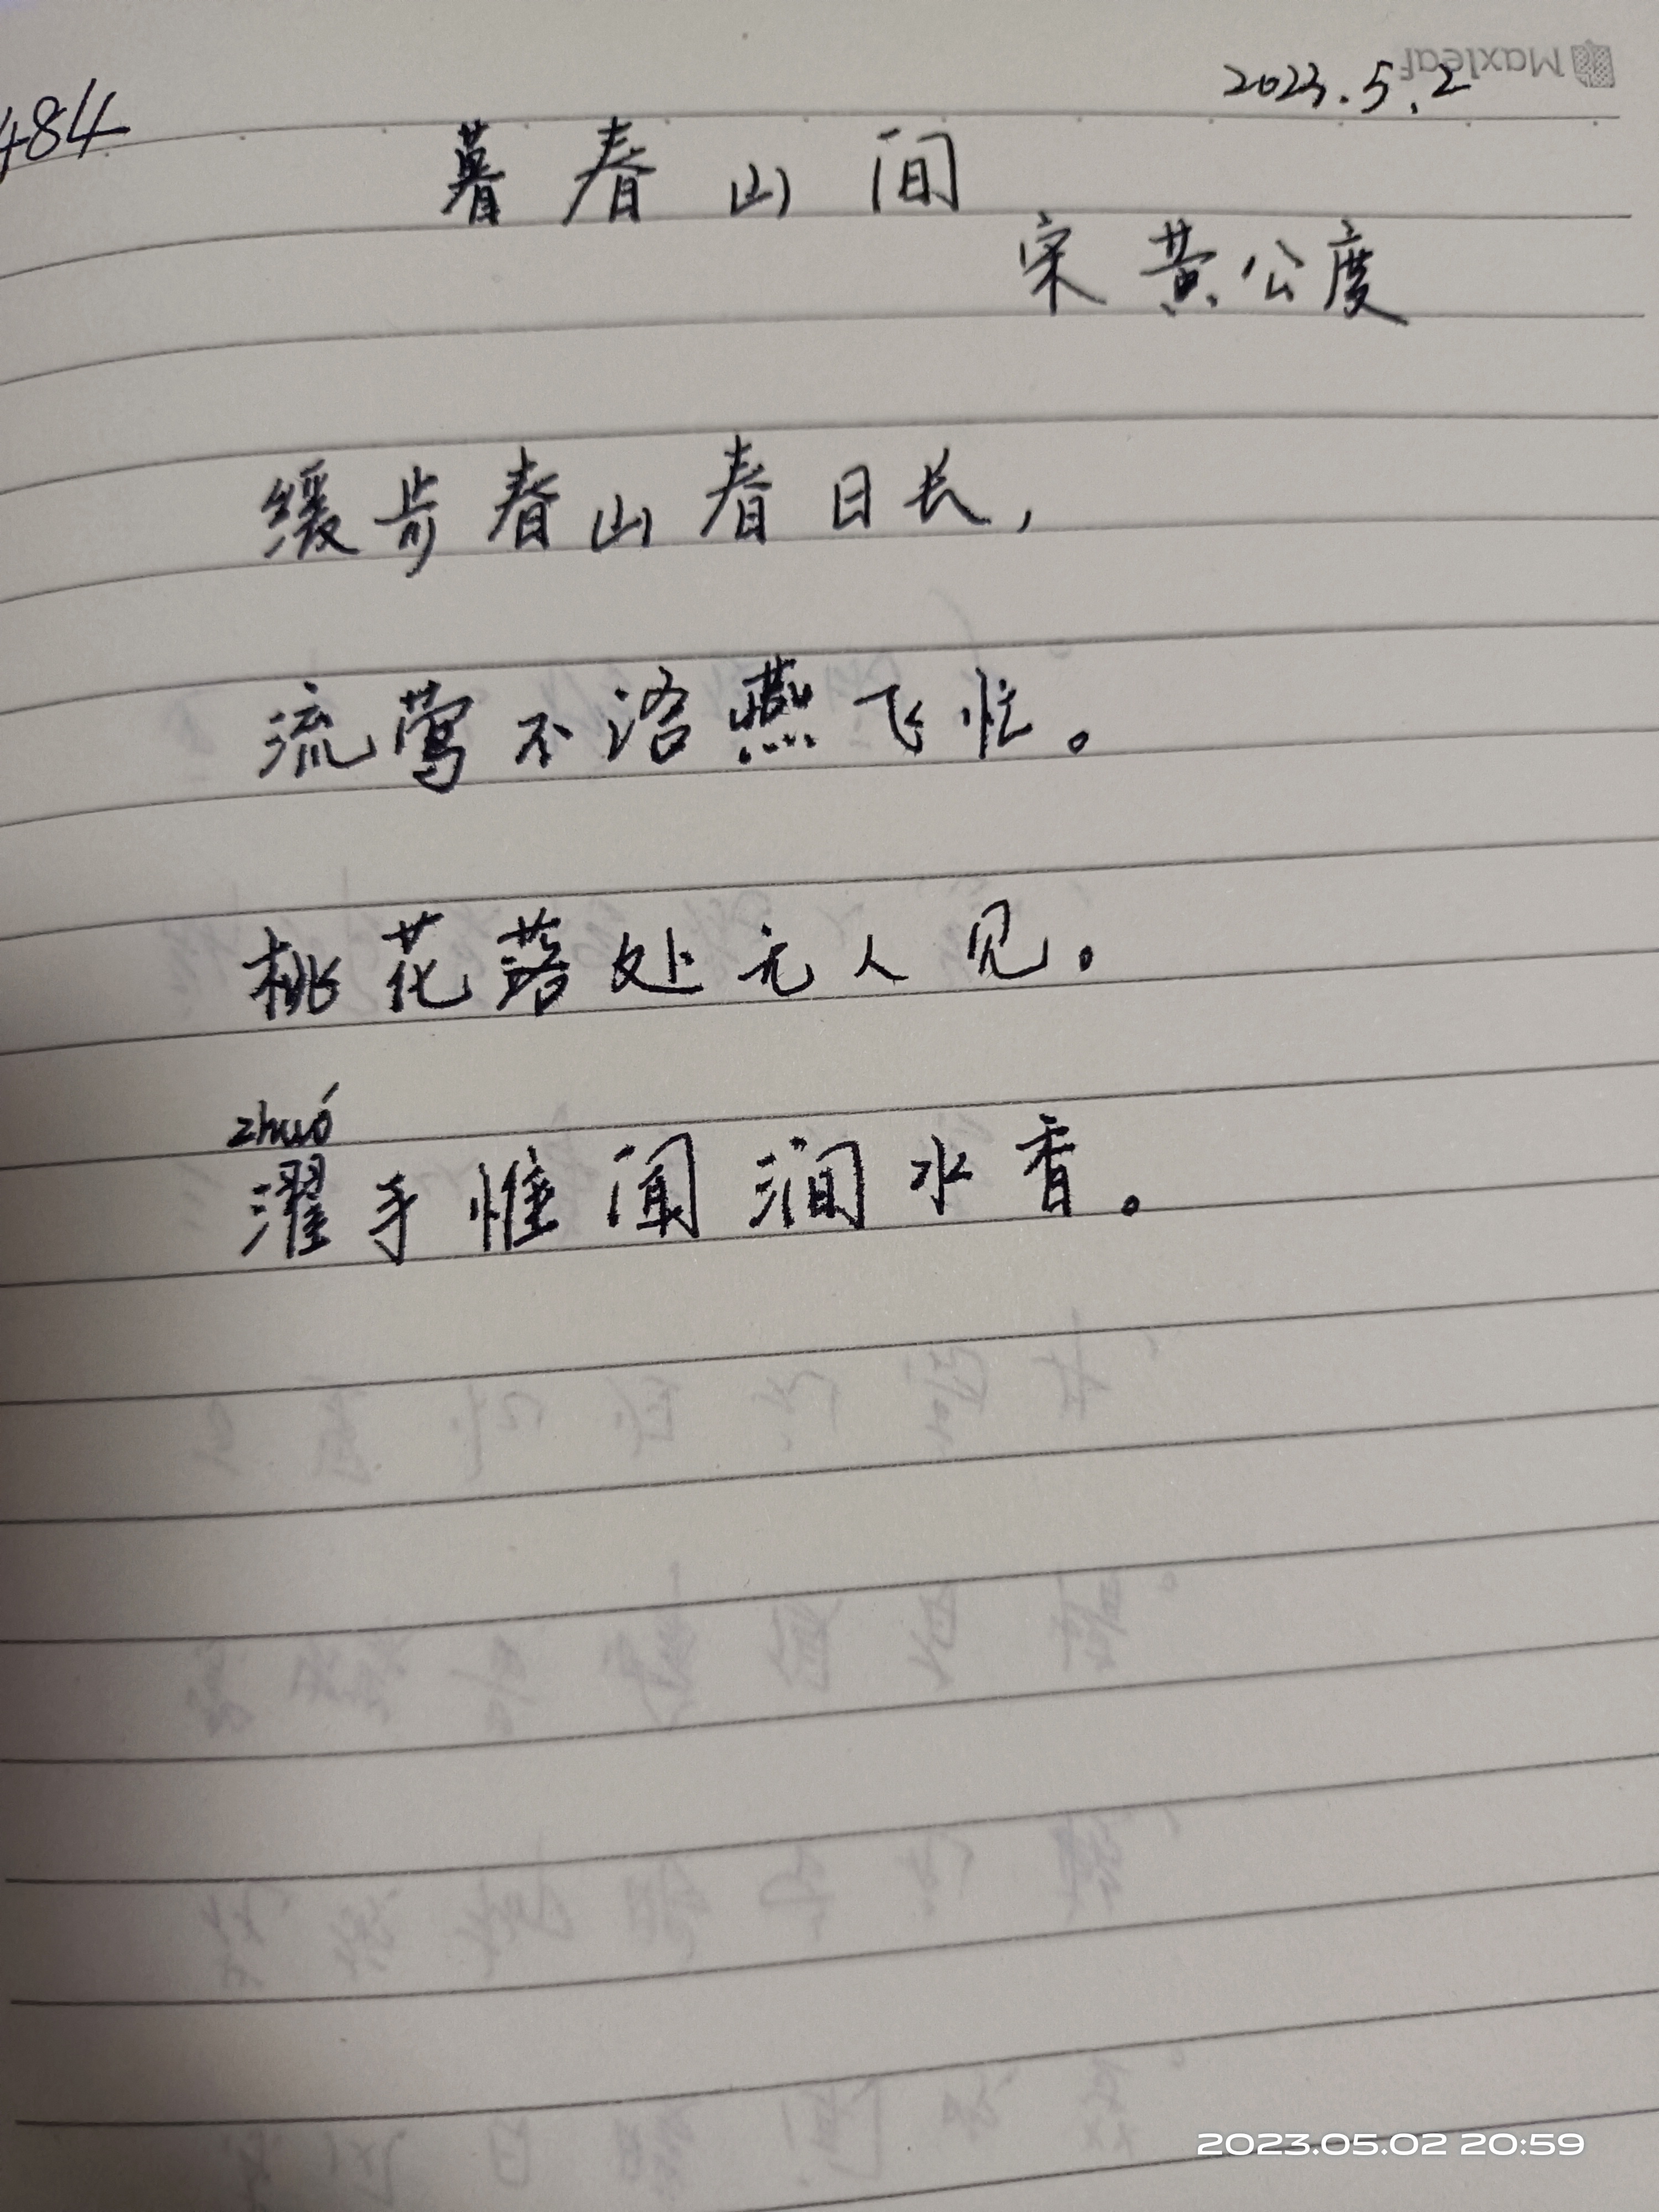 Maxleaf
2023.5.2
484
暮春山间
宋 黄公度
缓步春山春日长,
流莺不语燕飞忙。
桃花落处无人见。
zhuó
濯手惟闻涧水香。
2023.05.02 20:59